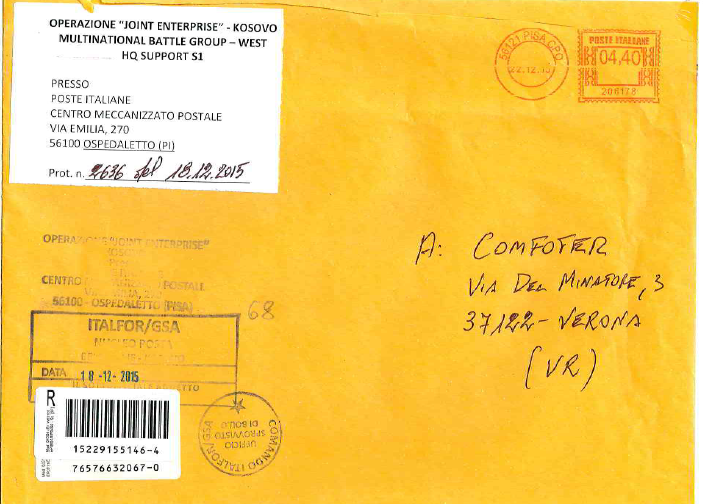 OPERAZIONE "JOINT ENTERPRISE" - KOSOVO
MULTINATIONAL BATTLE GROUP – WEST
HQ SUPPORT S1
PRESSO
POSTE ITALIANE
CENTRO MECCANIZZATO POSTALE
VIA EMILIA, 270
56100 OSPEDALETTO (PI)
Prot. n. 2636 del 18.12.2015
56121 PISA CPO
22.12.15
POSTE ITALIANE
04,40
206178
A: COMFOTER
VIA DEL MINATORE, 3
37122 - VERONA
(VR)
OPERAZIONE "JOINT ENTERPRISE"
CENTRO POSTALE
56100 - OSPEDALETTO (PISA)
68
ITALFOR/GSA
NUCLEO POSTA
DATA 18-12-2015
R
15229155146-4
76576632067-0
COMANDO ITALFOR/GSA
UFFICIO
SPROVVISTO
DI BOLLO